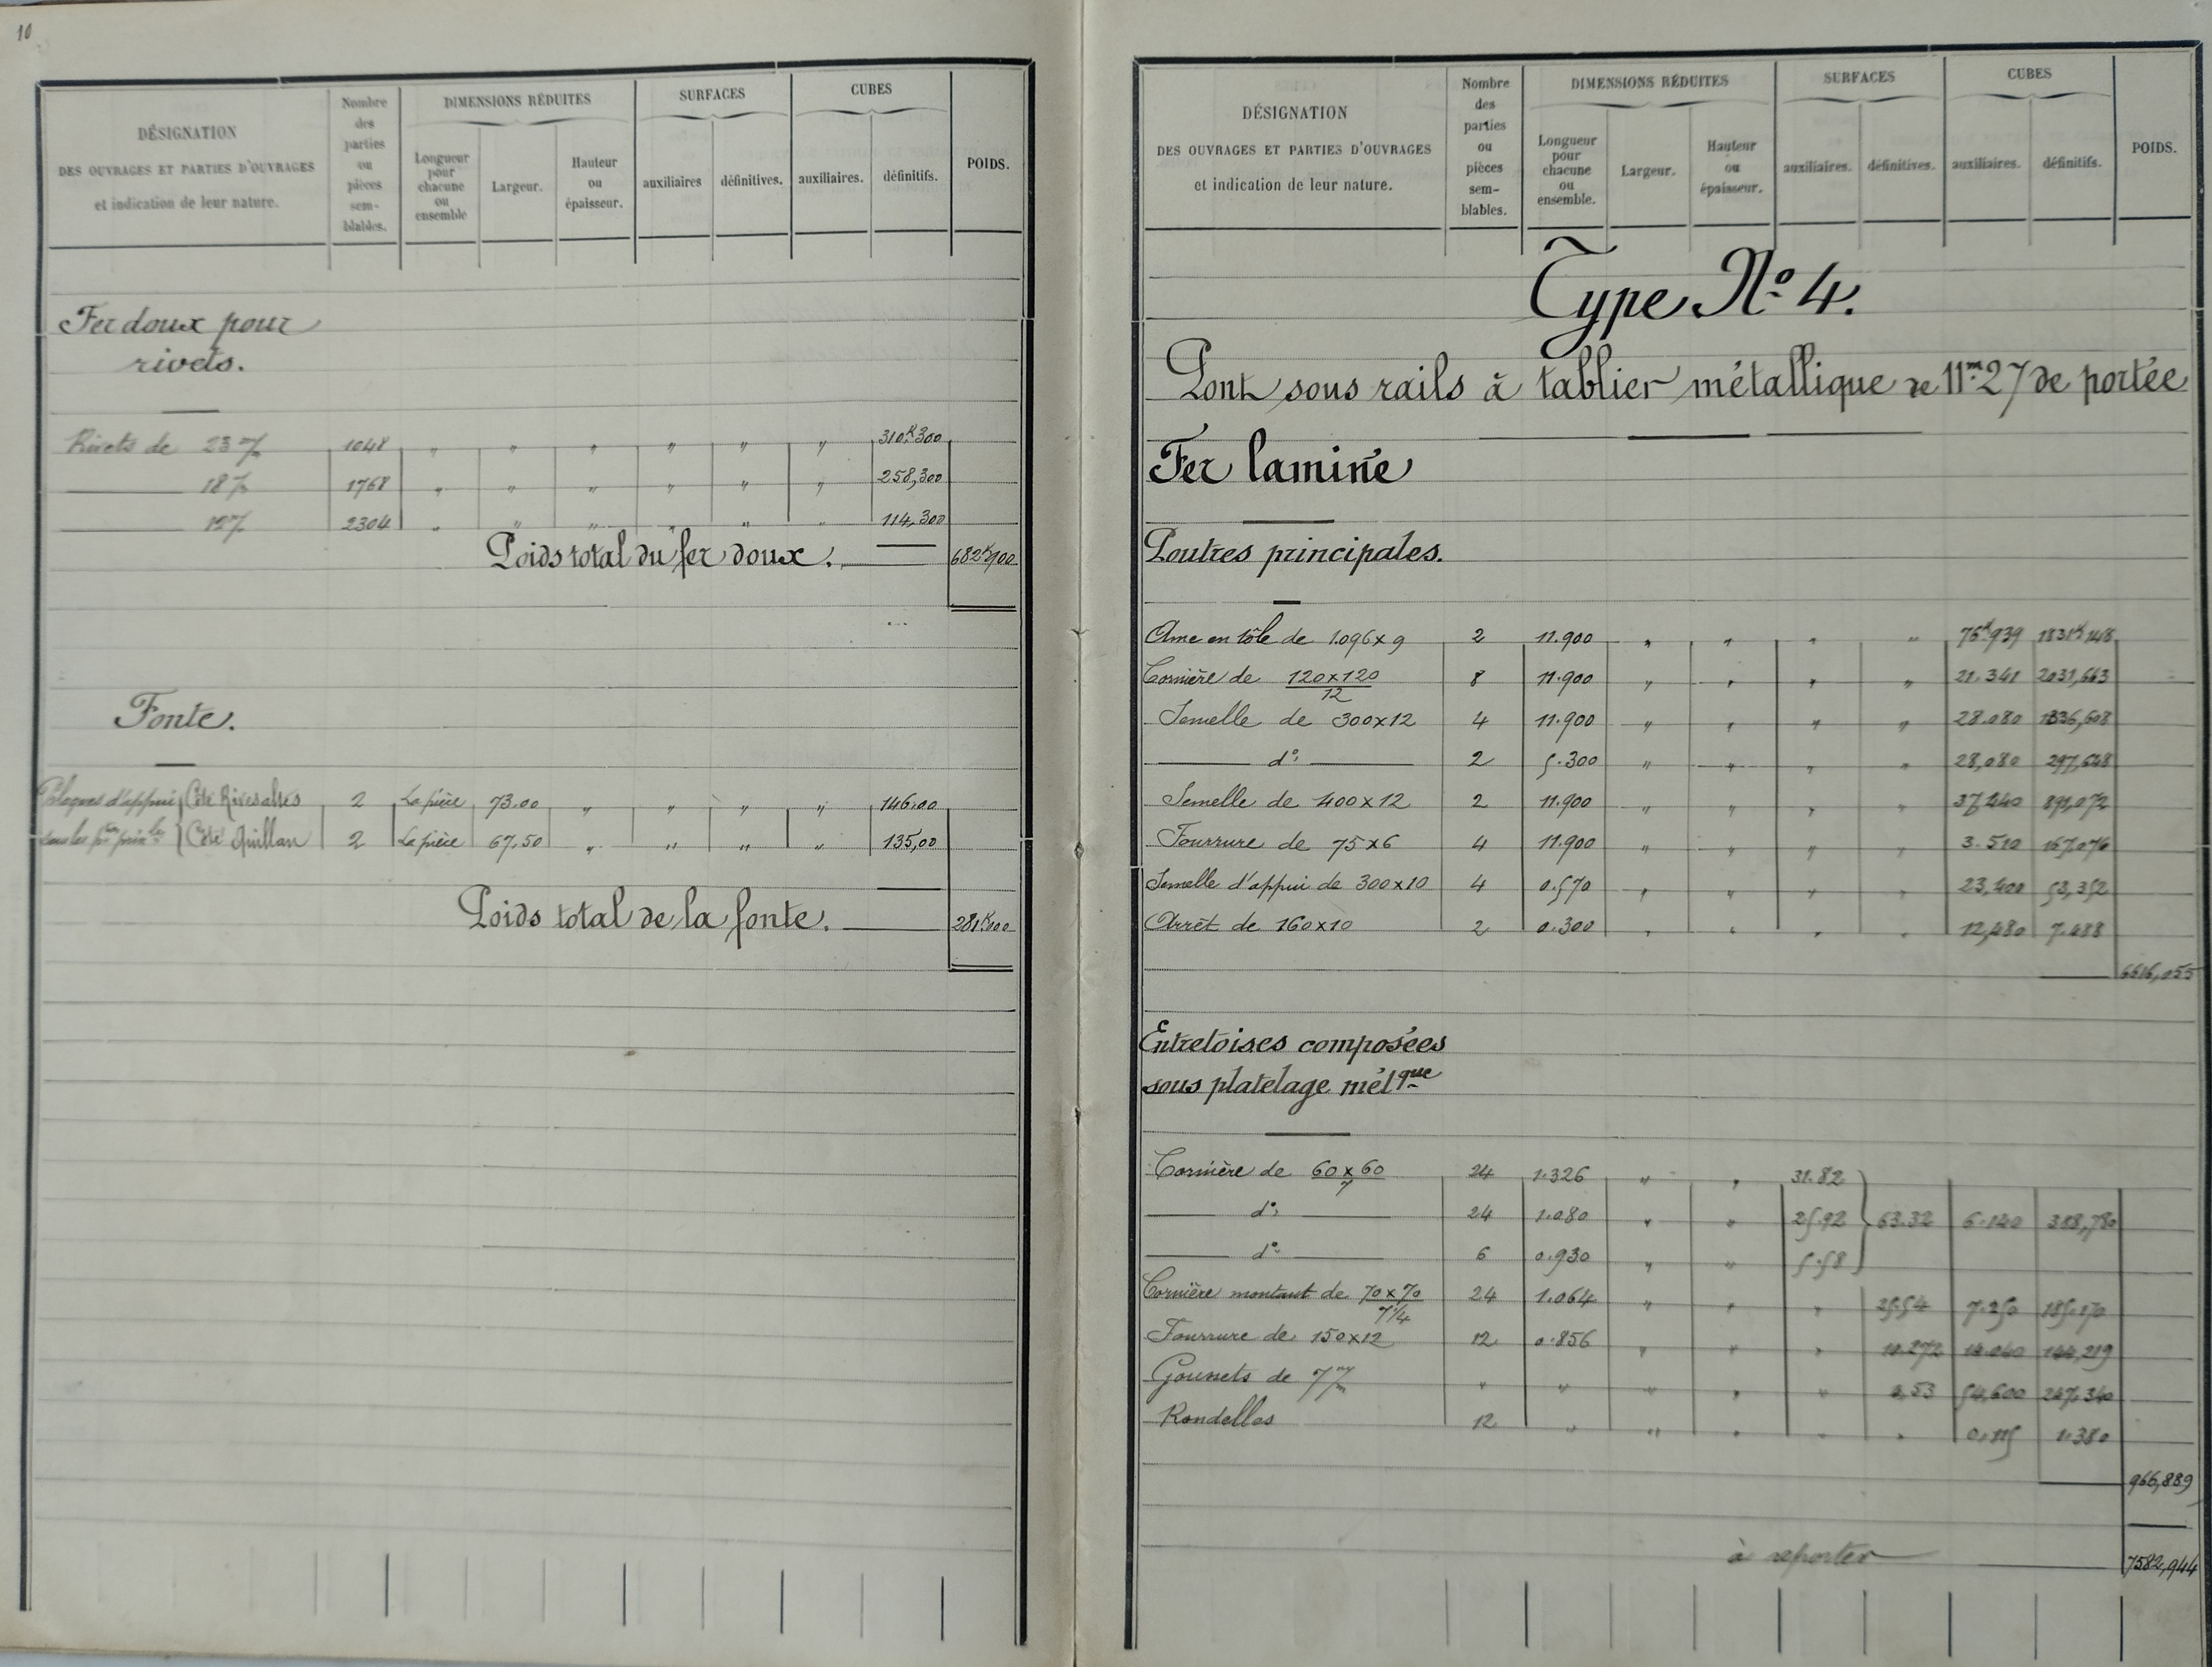 10
DÉSIGNATION
DES OUVRAGES ET PARTIES D'OUVRAGES
et indication de leur nature.
Nombre
des
parties
ou
pièces
sem-
blables.
DIMENSIONS RÉDUITES
Longueur
pour
chacune
ou
ensemble
Largeur.
Hauteur
ou
épaisseur.
SURFACES
auxiliaires
définitives.
CUBES
auxiliaires.
définitifs.
POIDS.
Fer doux pour
rivets.
Rivets de 23 m/m 1048 " " " " " " 310K300
18 m/m 1768 " " " " " " 258,300
12 m/m 2304 " " " " " " 114,300
Poids total du fer doux. 682K900
Fonte.
Plaques d'appui Côté Rivesaltes 2 La pièce 73.00 " " " " 146,00
sous les ptres princles Côté Quillan 2 La pièce 67.50 " " " " 135,00
Poids total de la fonte. 281K000
DÉSIGNATION
DES OUVRAGES ET PARTIES D'OUVRAGES
et indication de leur nature.
Nombre
des
parties
ou
pièces
sem-
blables.
DIMENSIONS RÉDUITES
Longueur
pour
chacune
ou
ensemble.
Largeur.
Hauteur
ou
épaisseur.
SURFACES
auxiliaires.
définitives.
CUBES
auxiliaires.
définitifs.
POIDS.
Type No 4.
Pont sous rails à tablier métallique de 11m27 de portée
Fer laminé
Poutres principales.
Ame en tôle de 1.096 x 9 2 11.900 " " " " 76K939 1831K148
Cornière de 120x120/12 8 11.900 " " " " 21.341 2031,663
Semelle de 300x12 4 11.900 " " " " 28.080 1336,608
do 2 5.300 " " " " 28,080 297,648
Semelle de 400x12 2 11.900 " " " " 37,440 891,072
Fourrure de 75x6 4 11.900 " " " " 3.510 167,076
Semelle d'appui de 300x10 4 0.570 " " " " 23,400 53,352
Arrêt de 160x10 2 0.300 " " " " 12,480 7.488
6616,055
Entretoises composées
sous platelage métque
Cornière de 60x60/7 24 1.326 " " 31.82
do 24 1.080 " " 25.92 63.32 6.140 388,780
do 6 0.930 " " 5.58
Cornière montant de 70x70/7 1/4 24 1.064 " " " 25.54 7.250 185.170
Fourrure de 150x12 12 0.856 " " " 10.272 14.040 144,219
Goussets de 7 m/m " " " " " 4,53 54,600 247,340
Rondelles 12 " " " " " 0.115 1.380
966,889
à reporter 7582,944